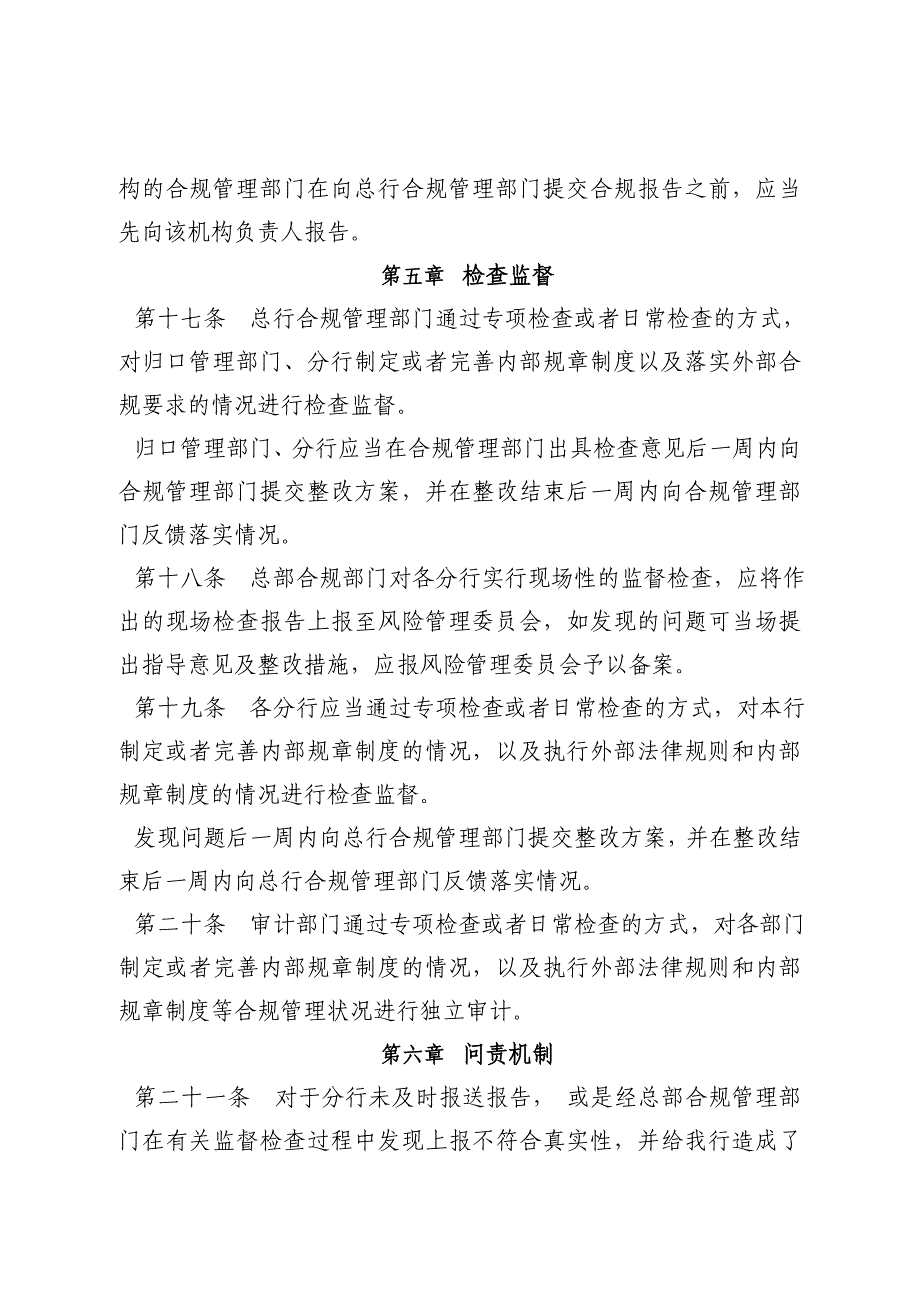 构的合规管理部门在向总行合规管理部门提交合规报告之前，应当
先向该机构负责人报告。
第五章 检查监督
第十七条 总行合规管理部门通过专项检查或者日常检查的方式，
对归口管理部门、分行制定或者完善内部规章制度以及落实外部合
规要求的情况进行检查监督。
归口管理部门、分行应当在合规管理部门出具检查意见后一周内向
合规管理部门提交整改方案，并在整改结束后一周内向合规管理部
门反馈落实情况。
第十八条 总部合规部门对各分行实行现场性的监督检查，应将作
出的现场检查报告上报至风险管理委员会，如发现的问题可当场提
出指导意见及整改措施，应报风险管理委员会予以备案。
第十九条 各分行应当通过专项检查或者日常检查的方式，对本行
制定或者完善内部规章制度的情况，以及执行外部法律规则和内部
规章制度的情况进行检查监督。
发现问题后一周内向总行合规管理部门提交整改方案，并在整改结
束后一周内向总行合规管理部门反馈落实情况。
第二十条 审计部门通过专项检查或者日常检查的方式，对各部门
制定或者完善内部规章制度的情况，以及执行外部法律规则和内部
规章制度等合规管理状况进行独立审计。
第六章 问责机制
第二十一条 对于分行未及时报送报告， 或是经总部合规管理部
门在有关监督检查过程中发现上报不符合真实性，并给我行造成了